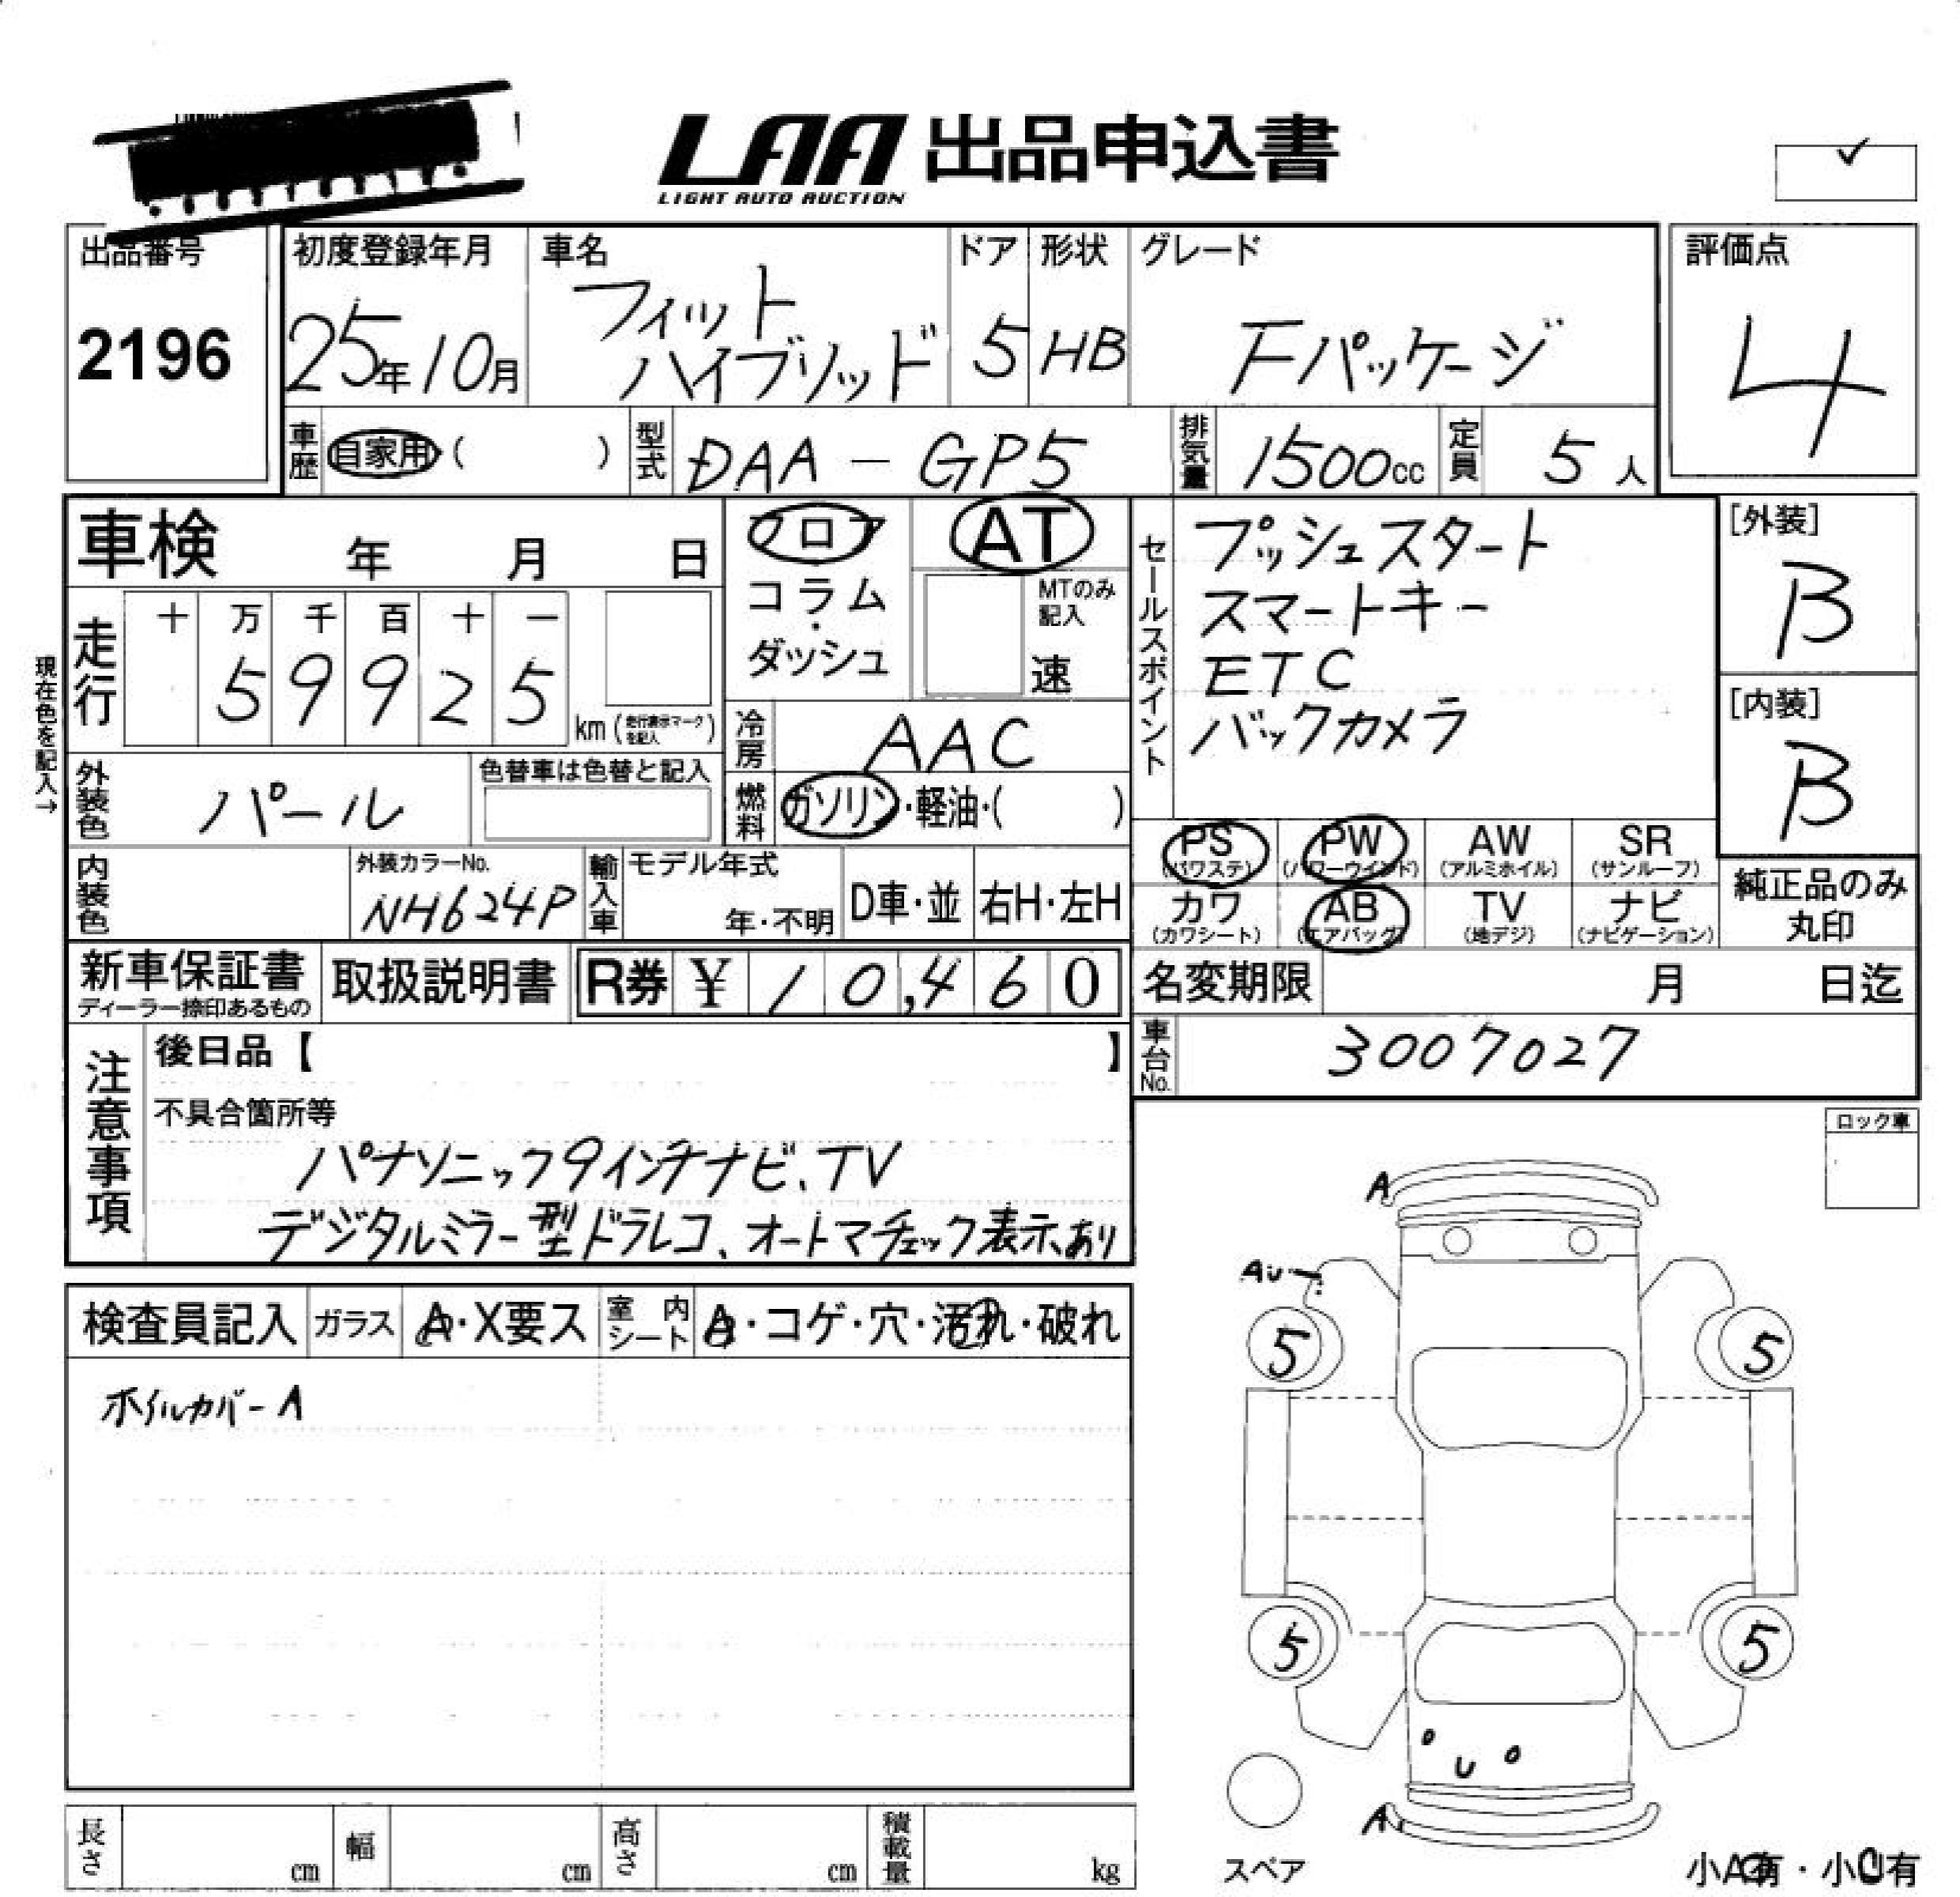 LAA 出品申込書
LIGHT AUTO AUCTION
出品番号
2196
初度登録年月
25年10月
車名
フィット
ハイブリッド
ドア
5
形状
HB
グレード
Fパッケージ
評価点
4
車歴
自家用 ( )
型式
DAA-GP5
排気量
1500cc
定員
5人
車検 年 月 日
フロア
コラム
・
ダッシュ
AT
MTのみ
記入
速
セールスポイント
プッシュスタート
スマートキー
ETC
バックカメラ
[外装]
B
[内装]
B
現在色を記入→
走行
十 万 千 百 十 一
5 9 9 2 5
km (走行表示マークを記入)
冷房
AAC
外装色
パール
色替車は色替と記入
燃料
ガソリン・軽油・( )
PS
(パワステ)
PW
(パワーウインド)
AW
(アルミホイル)
SR
(サンルーフ)
カワ
(カワシート)
AB
(エアバッグ)
TV
(地デジ)
ナビ
(ナビゲーション)
純正品のみ
丸印
内装色
外装カラーNo.
NH624P
輸入車
モデル年式
年・不明
D車・並
右H・左H
新車保証書
ディーラー捺印あるもの
取扱説明書
R券 ¥ 10,460
名変期限 月 日迄
車台No.
3007027
注意事項
後日品【 】
不具合箇所等
パナソニック9インチナビ、TV
デジタルミラー型ドラレコ、オートマチェック表示あり
ロック車
検査員記入
ガラス
A・X要ス
室内シート
A・コゲ・穴・汚れ・破れ
ホイルカバーA
A
AU
5
5
5
5
U
A
スペア
長さ cm
幅 cm
高さ cm
積載量 kg
小A有・小U有